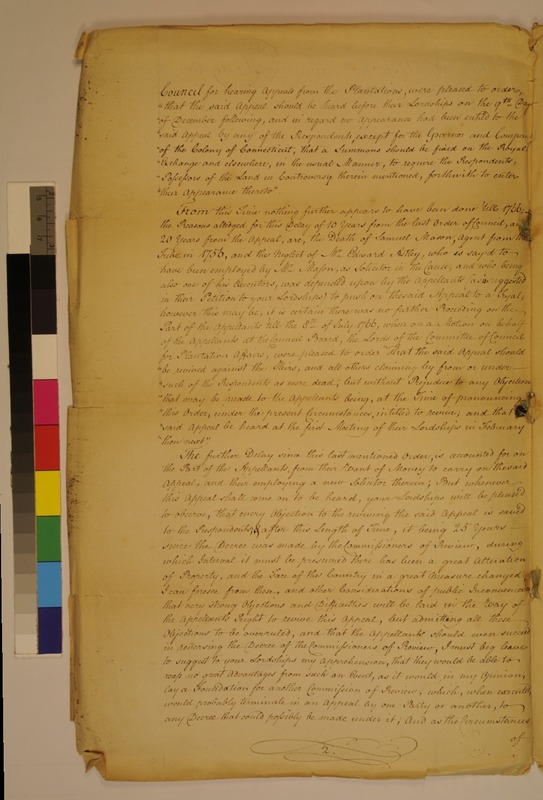 Council for hearing Appeals from the Plantations, were pleased to order,
"that the said Appeal should be heard before their Lordships on the 9th Day
of December following, and in regard no Appearance had been entred to the
said Appeal by any of the Respondents, except for the Governor and Company
"of the Colony of Connecticut, that a Summons should be fixed on the Royal
"Exchange and elsewhere, in the usual Manner, to require the Respondents,
"Possessors of the Land in Controversy therein mentioned, forthwith to enter
"their Appearance thereto"
From this Time nothing further appears to have been done till 1766,
the Reasons alledged for this Delay of 10 Years from the last Order of Council, and
20 Years from the Appeal, are, the Death of Samuel Mason, Agent from the
Tribe in 1756, and the Neglect of Mr. Edward who is sayd to
have been employed by Mr. Mason, as Solicitor in the Cause, and who being
also one of his Executors, was depended upon by the Appellants (as is suggested
in their Petition to your Lordships) to push on the said Appeal to a Tryal;
however this may be, it is certain there was no further Proceeding on the
Part of the Appellants till the 8th of July 1766, when on a Motion on behalf
of the Appellants at the Council Board, the Lords of the Committee of Council
for Plantation Affairs, were pleased to order "That the said Appeal should
"be revived against the Heirs, and all others claiming by from or under
"such of the Respondents as were dead; but without Prejudice to any Objection
"that may be made to the Appellants being, at the Time of pronouncing
"this Order, under the present Circumstances, intitled to revive; and that
"said Appeal be heard at the first Meeting of their Lordships in February
"then next"
The further Delay since this last mentioned Order, is accounted for on
the Part of the Appellants, from their Want of Money to carry on the said
Appeal, and their employing a new Solicitor therein; But whenever
this Appeal shall come on to be heard, your Lordships will be pleased
to observe, that every Objection to the reviving the said Appeal is saved
to the Respondents, & after this Length of Time, it being 25 Years
since the Decree was made by the Commissioners of Review, during
which Interval it must be presumed there has been a great Alteration
of Property, and the Face of this Country in a great Measure changed
I can foresee from then, and other Considerations of public Inconvenience
that very strong Objections and Difficulties will be laid in the Way of
the Appellants Right to revive this Appeal, but admitting all these
Objections to be overruled, and that the Appellants should even succeed
in reversing the Decree of the Commissioners of Review, I must beg leave
to suggest to your Lordships my Apprehension, that they would be able to
reap no great Advantages from such an Event, as it would, in my Opinion,
lay a Foundation for another Commission of Review, which, when executed,
would probably terminate in an Appeal by one Party or another, to
any Decree that could possibly be made under it; And as the Circumstances
of
2.